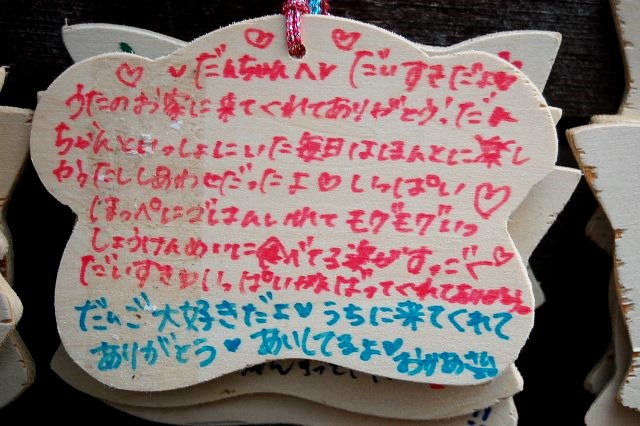 ♡ ♥ だんちゃんへ♥ だいすきだよ♥
うたのお家に来てくれてありがとう!だん
ちゃんといっしょにいた毎日はほんとに楽し
かったししあわせだったよ♡ いっぱい ♡
ほっぺにごはんいれてモグモグいっ
しょうけんめいに食べてる姿がすっごく♡
だいすき♥いっぱいがんばってくれてありがとう。
だんご大好きだよ♥うちに来てくれて
ありがとう♥あいしてるよ♥おかあさん